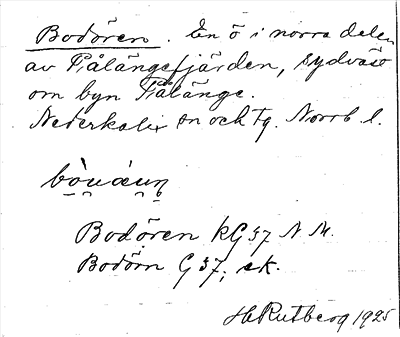 Bodören. En ö i norra delen
av Pålängefjärden, sydväst
om byn Pålänge.
Nederkalix sn och tg. Norrb l.
Bodören kG 37 N M.
Bodörn G 37, ek.
H Rutberg 1925